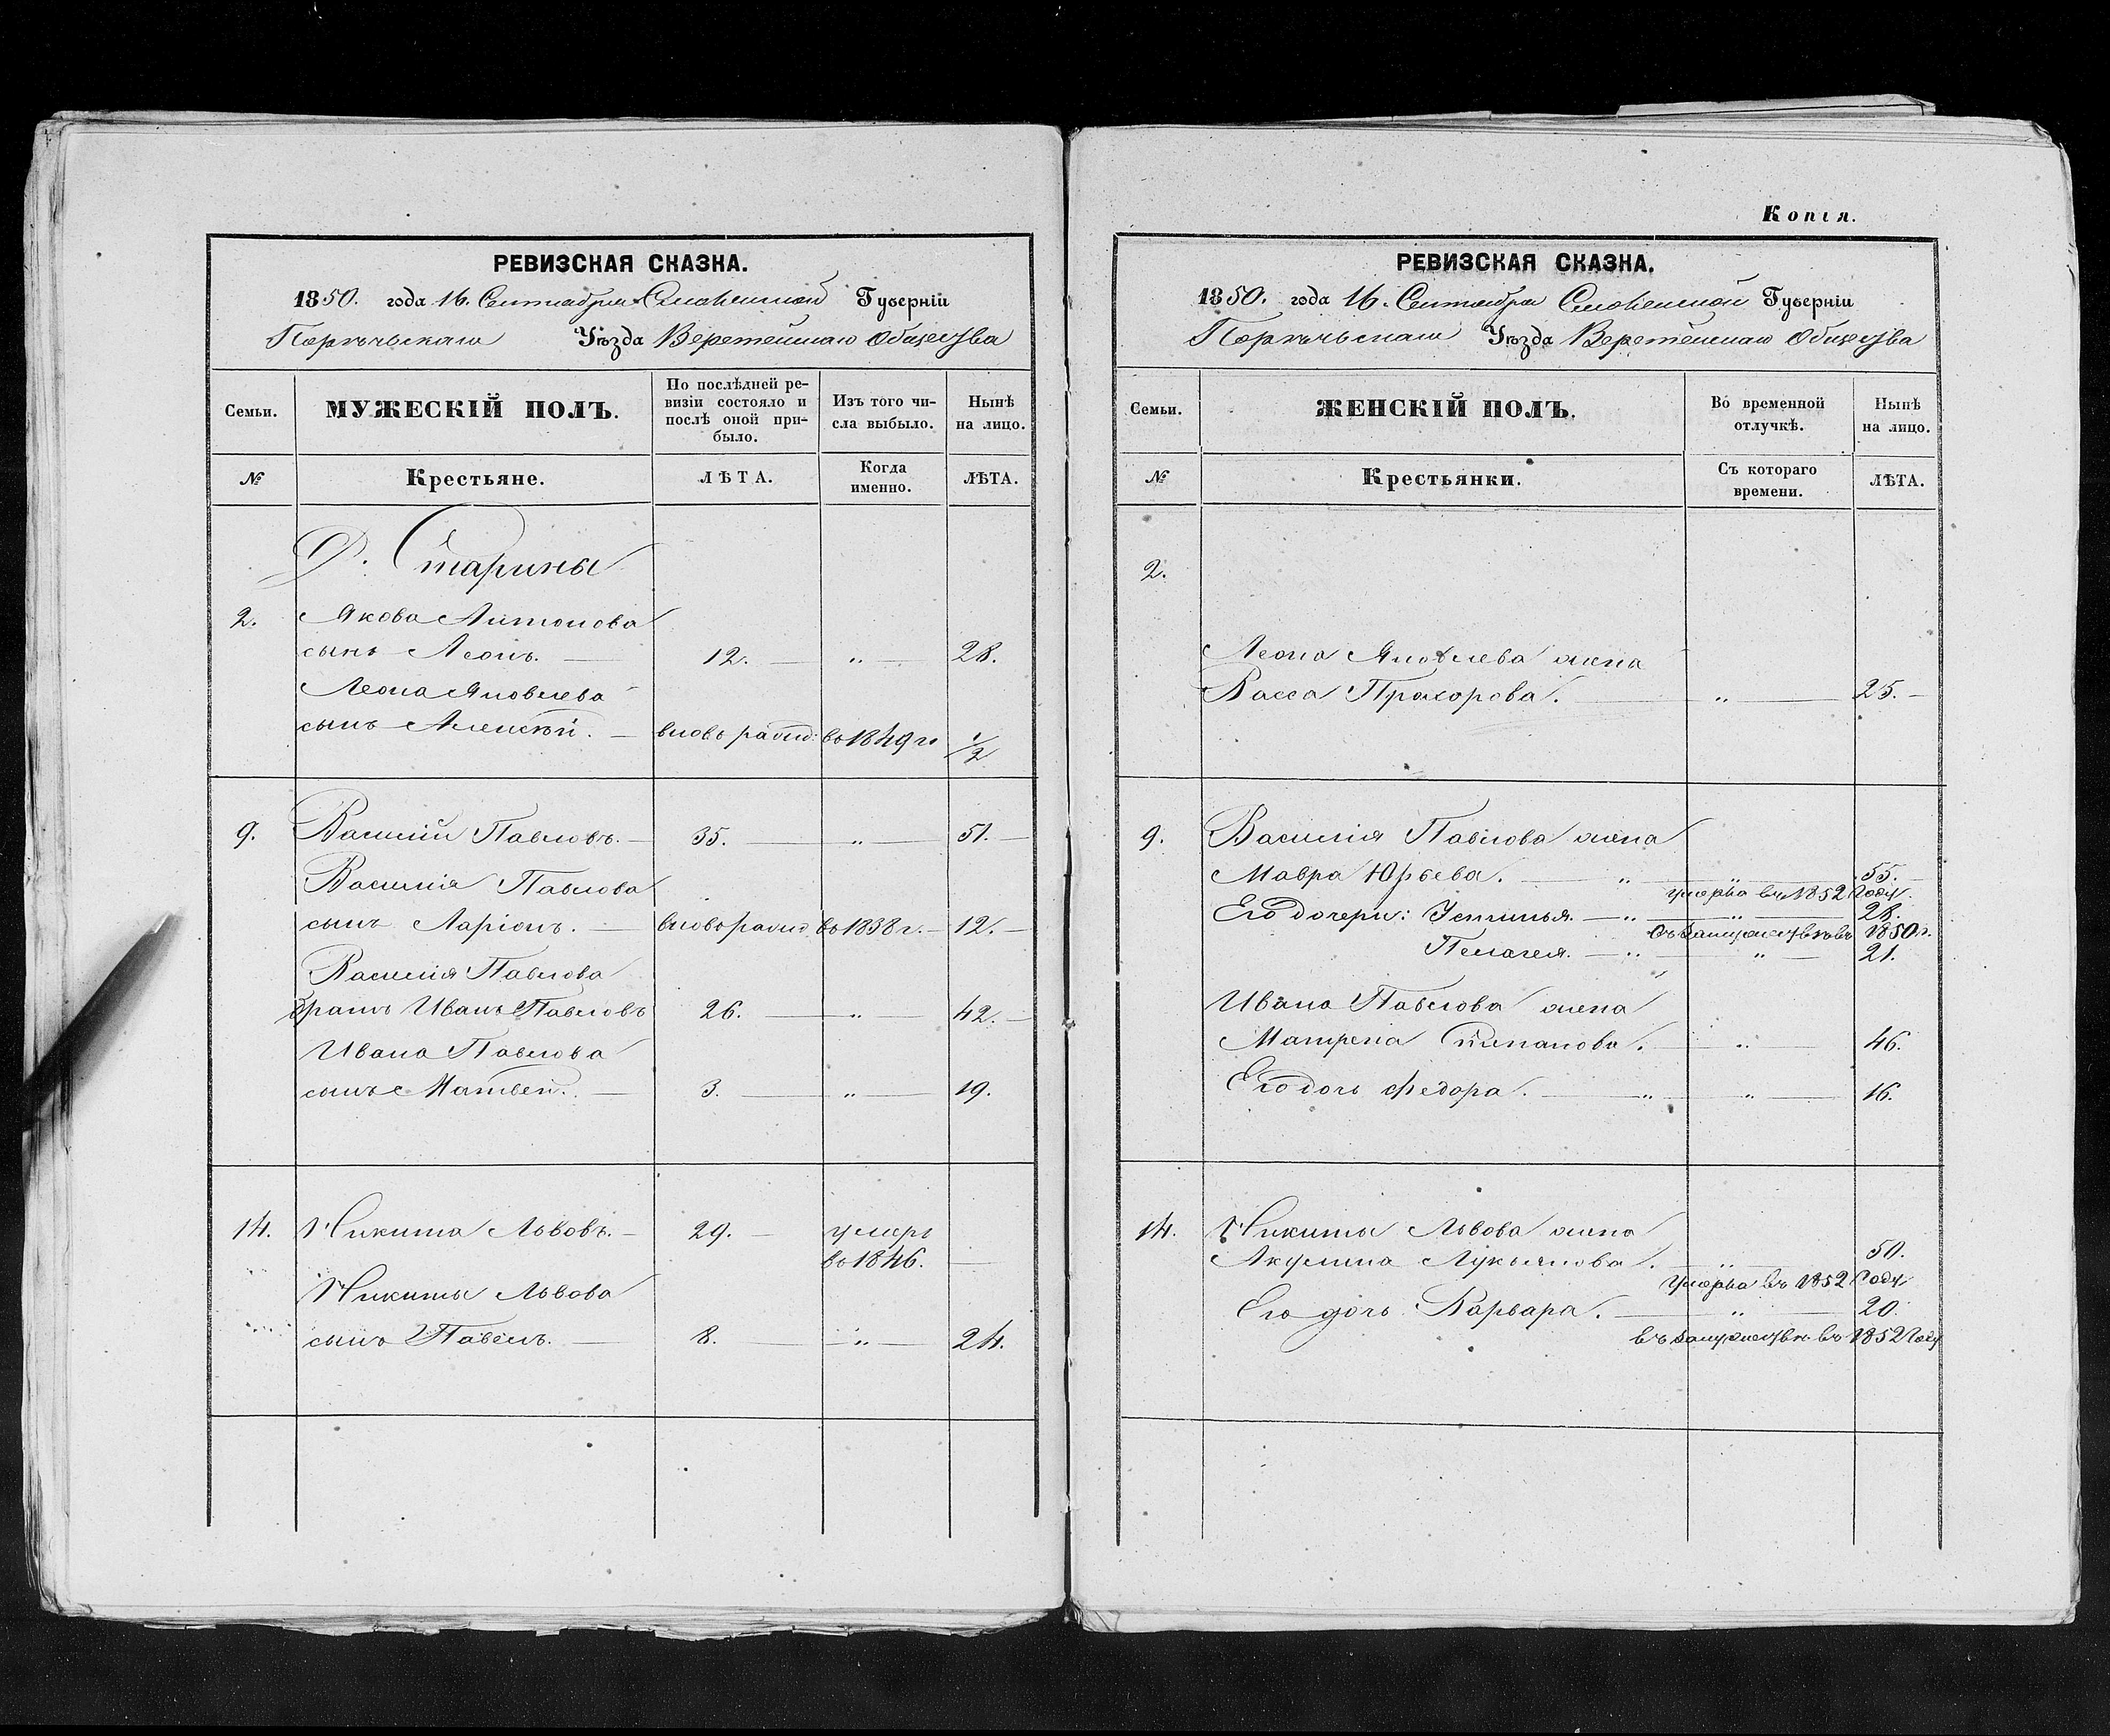 РЕВИЗСКАЯ СКАЗКА.
1850. года 16. Сентября Смоленской Губерніи
Порѣчьскаго Уѣзда Веретейскаго Общества
Семьи.
МУЖЕСКІЙ ПОЛЪ.
По послѣдней ре-
визіи состояло и
послѣ оной при-
было.
Изъ того чи-
сла выбыло.
Нынѣ
на лицо.
№
Крестьяне.
ЛѢТА.
Когда
именно.
ЛѢТА.
Д. Старины
2. Якова Антонова
сынъ Леонъ. — 12. — „ — 28.
Леона Яковлева
сынъ Алексѣй. — вновь рожд: въ 1849 го 1/2
9. Василій Павловъ. — 35. — „ — 51. —
Василія Павлова
сынъ Ларіонъ. — вновь рожд въ 1838 г. — 12. —
Василія Павлова
братъ Иванъ Павловъ 26. — „ — 42. —
Ивана Павлова
сынъ Матвей. — 3. — „ — 19.
14. Никита Львовъ. — 29. — умеръ
въ 1846. —
Никиты Львова
сынъ Павелъ. — 8. — „ — 24.
Копія.
РЕВИЗСКАЯ СКАЗКА.
1850. года 16. Сентября Смоленской Губерніи
Порѣчьскаго Уѣзда Веретейскаго Общества
Семьи.
ЖЕНСКІЙ ПОЛЪ.
Во временной
отлучкѣ.
Нынѣ
на лицо.
№
Крестьянки.
Съ котораго
времени.
ЛѢТА.
2.
Леона Яковлева жена
Васса Прохорова. — „ — 25. —
9. Василія Павлова жена
Мавра Юрьева. — „ — „ — 55. —
умерла въ 1852 Году.
Его дочери: Устинья. — „ — „ — 28.
въ замужествѣ въ 1850 г.
Пелагея. — „ — „ — 21.
Ивана Павлова жена
Матрена Степанова. — „ — 46.
Его дочь Федора. — „ — „ — 16.
14. Никиты Львова жена
Акулина Лукьянова. — „ — 50.
Умерла въ 1852 Году
Его дочь Варвара. — „ — 20.
въ замужествѣ въ 1852 Году